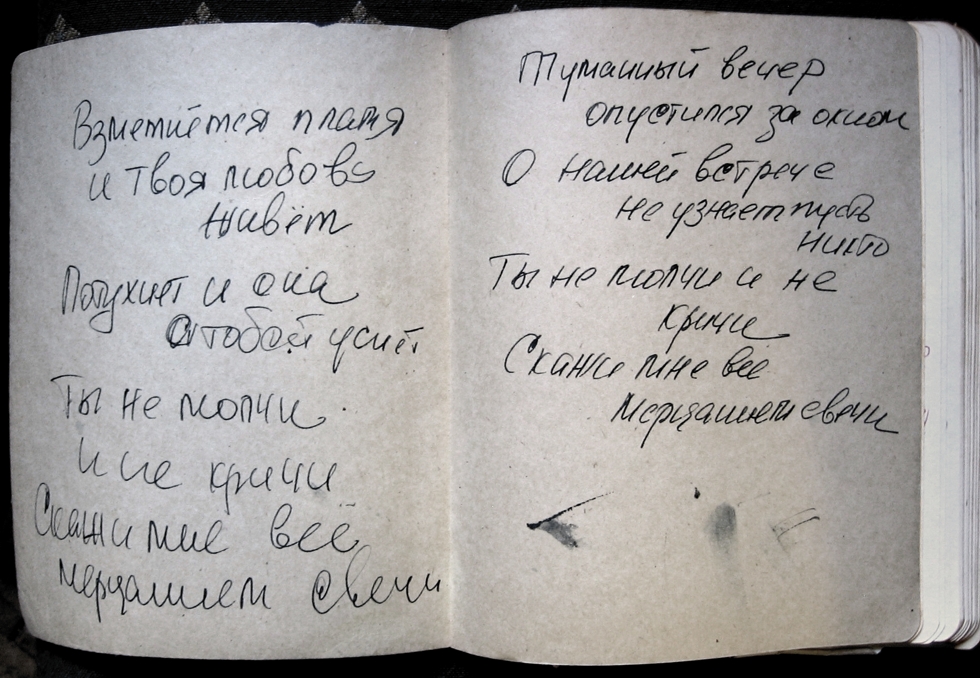 Взметнётся пламя
и твоя любовь
живёт
Потухнет и она
с тобой уснёт
Ты не молчи
И не кричи
Скажи мне всё
мерцанием свечи
Туманный вечер
опустился за окном
О нашей встрече
не узнает пусть
никто
Ты не молчи и не
кричи
Скажи мне всё
мерцанием свечи